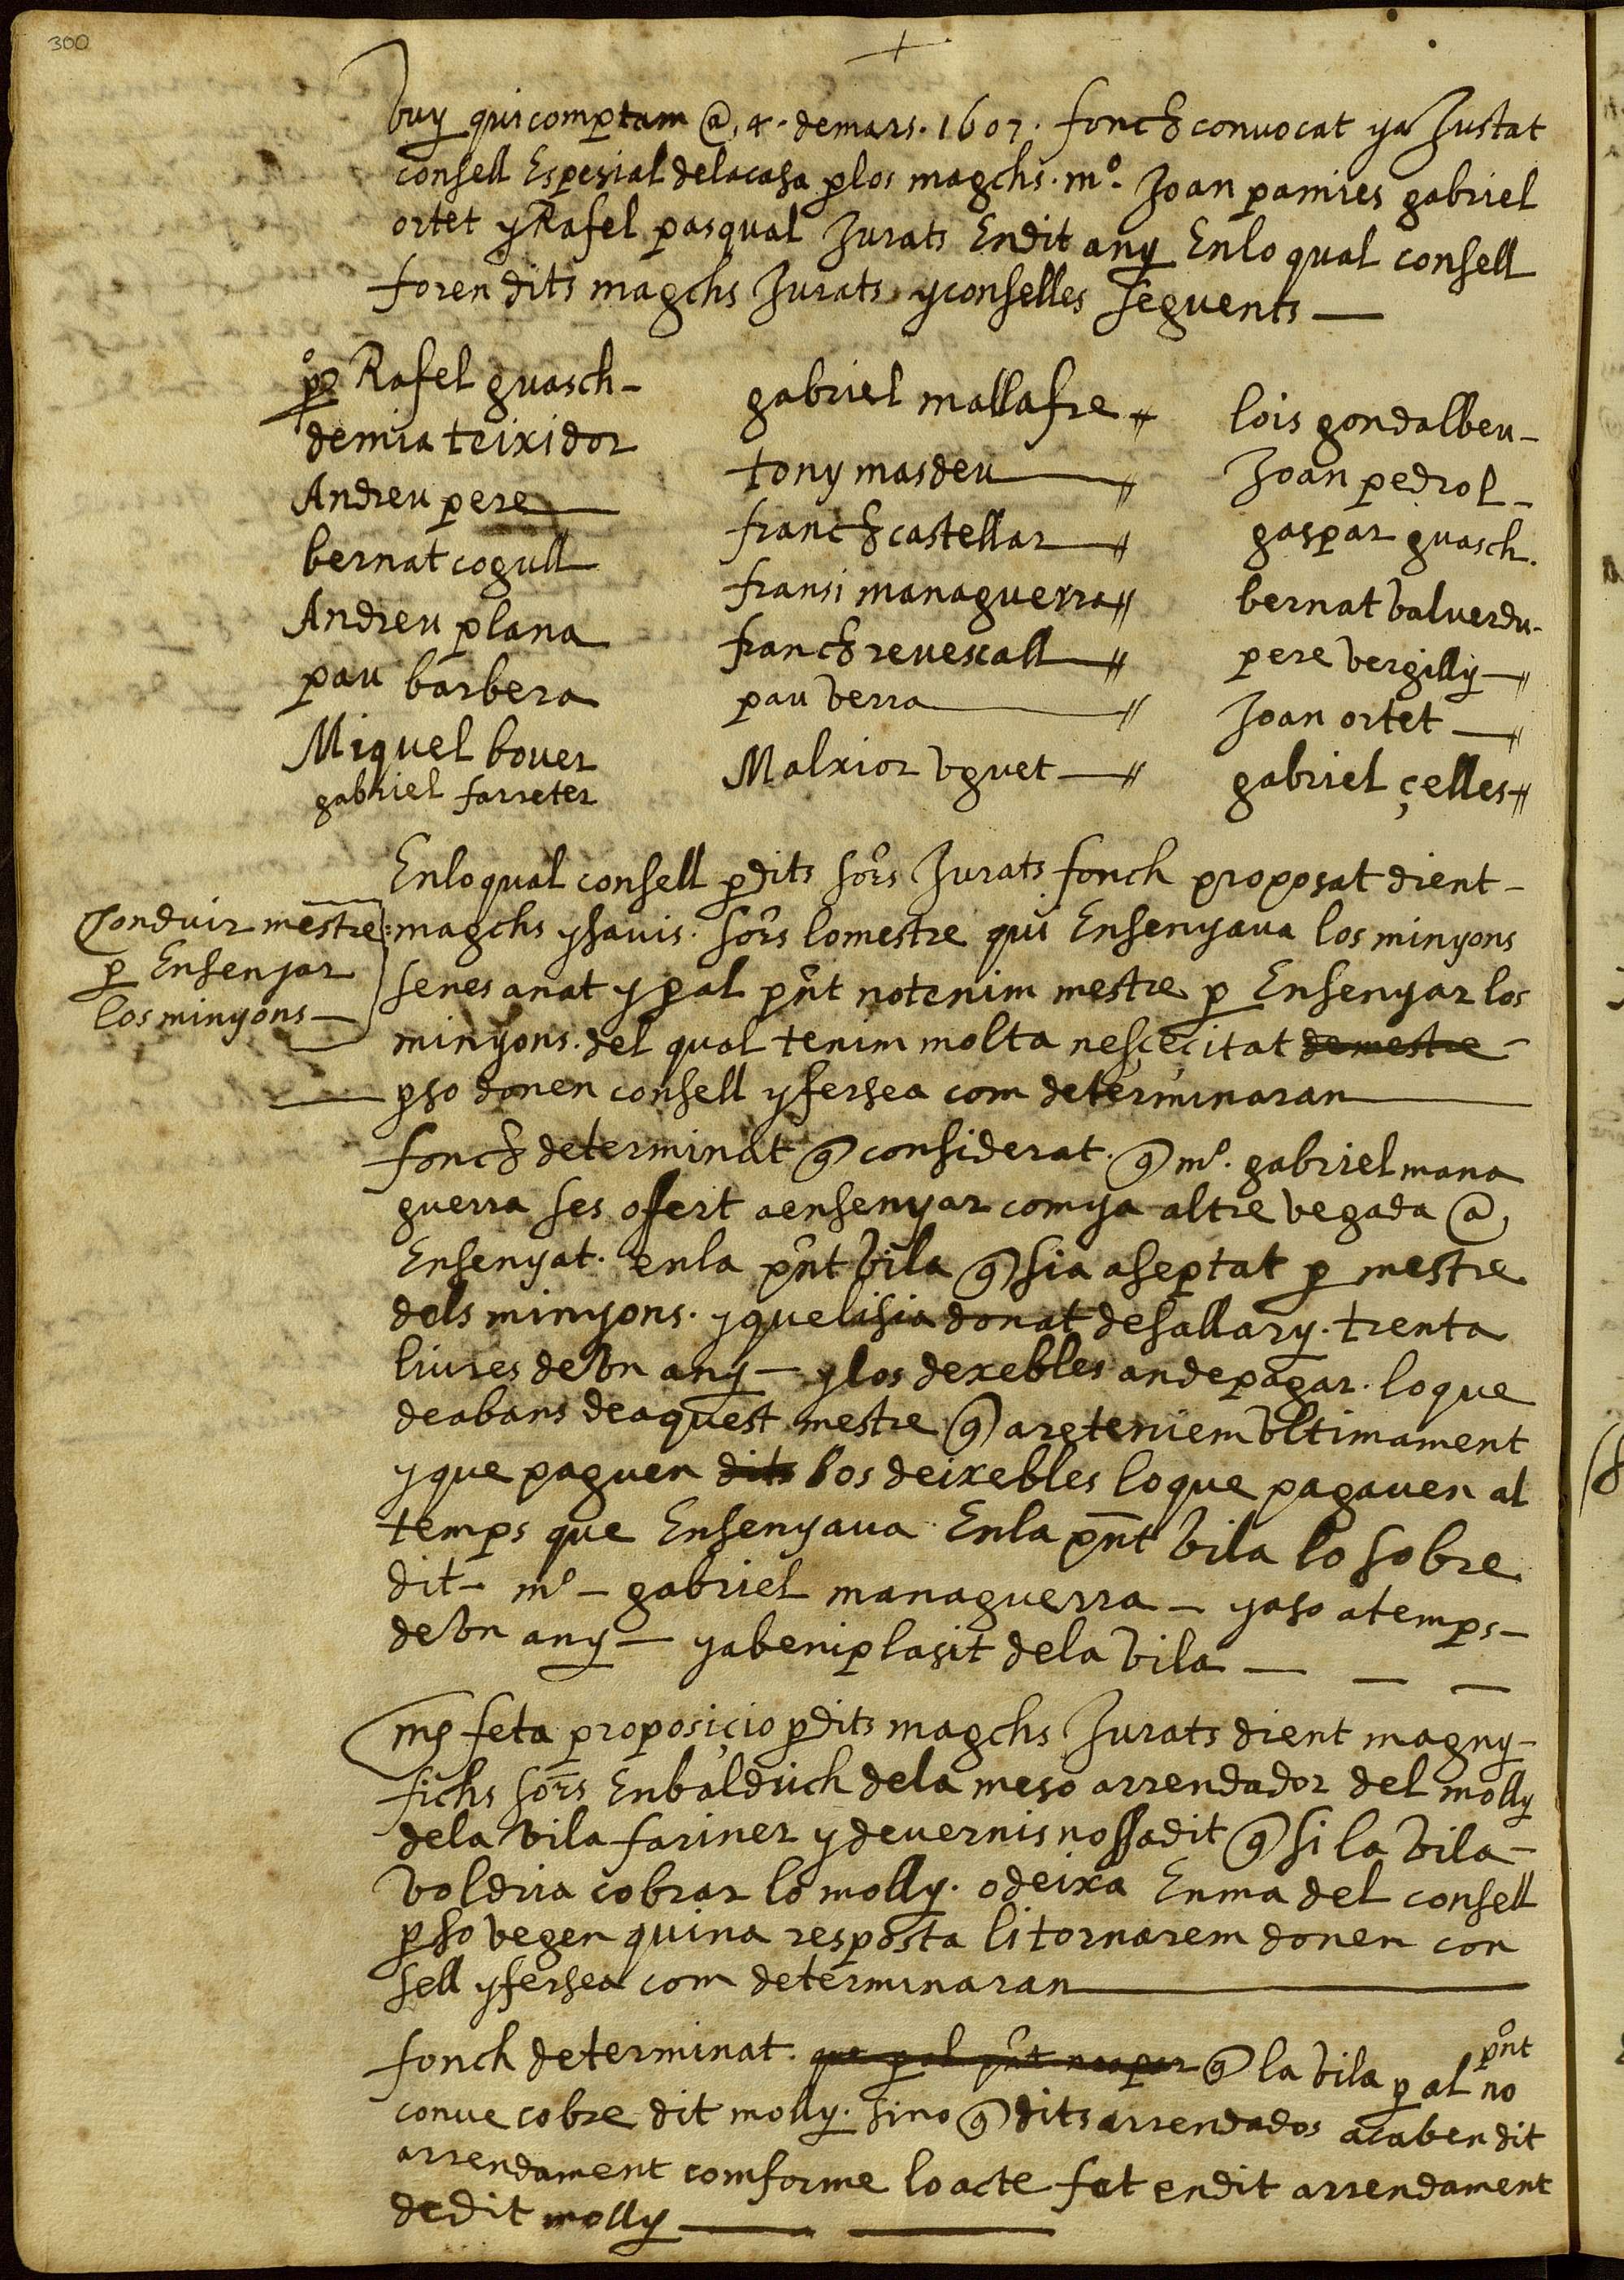 300
+
vuy quicomptam @ 4. demars. 1607. fonch convocat y aJustat
consell Espesial dela casa p los magchs. mº. Joan pamies gabriel
ortet y Rafel pasqual Jurats En dit any En lo qual consell
foren dits magchs Jurats y conselles seguents —
pº Rafel guasch -
demia teixidor
Andreu pere
bernat cogull
Andreu plana
pau barbera
Miquel bover
gabriel farreter
gabriel mallafre
tony masdeu
franch castellar
fransi managuerra
franch revescall
pau verra
Malxior vguet
lois gondalbeu -
Joan pedrol -
gaspar guasch.
bernat valverdu -
pere vergilly
Joan ortet
gabriel çelles
Conduir mestre
p Ensenyar
los minyons —
En lo qual consell p dits sors Jurats fonch proposat dient -
magchs y savis. sors lo mestre qui Ensenyava los minyons
senes anat y p al pnt no tenim mestre p Ensenyar los
minyons. del qual tenim molta nesçeçitat de mestre -
p so donen consell y fersea com determinaran
fonch determinat q considerat. q mº. gabriel mana
guerra ses ofert a ensenyar com ya altre vegada @
Ensenyat. en la pnt vila q sia aseptat p mestre
dels minyons. y que li sia donat de sallary. trenta
liures de vn any — y los dexebles an de pagar. lo que
de abans de aquest mestre q are teniem vltimament
y que paguen dits los deixebles lo que pagaven al
temps que Ensenyava En la pnt vila lo sobre
dit - mº - gabriel managuerra - y aso a temps -
de vn any — y a beniplasit dela vila —
mes feta proposiçio p dits magchs Jurats dient magny -
fichs sors En baldrich dela meso arrendador del molly
dela vila fariner y de vernis nos ha dit q si la vila -
voldria cobrar lo molly. o deixa En ma del consell
p so vegen quina resposta li tornarem donen con
sell y fersea com determinaran
fonch determinat. que p al pnt no aper q la vila p al pnt no
conve cobre dit molly. sino q dits arrendados acaben dit
arrendament comforme lo acte fet en dit arrendament
de dit molly